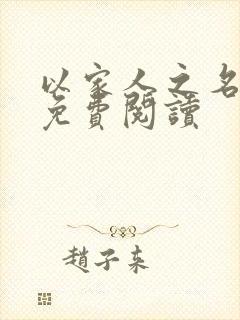 以家人之名
免費閱讀
趙子來